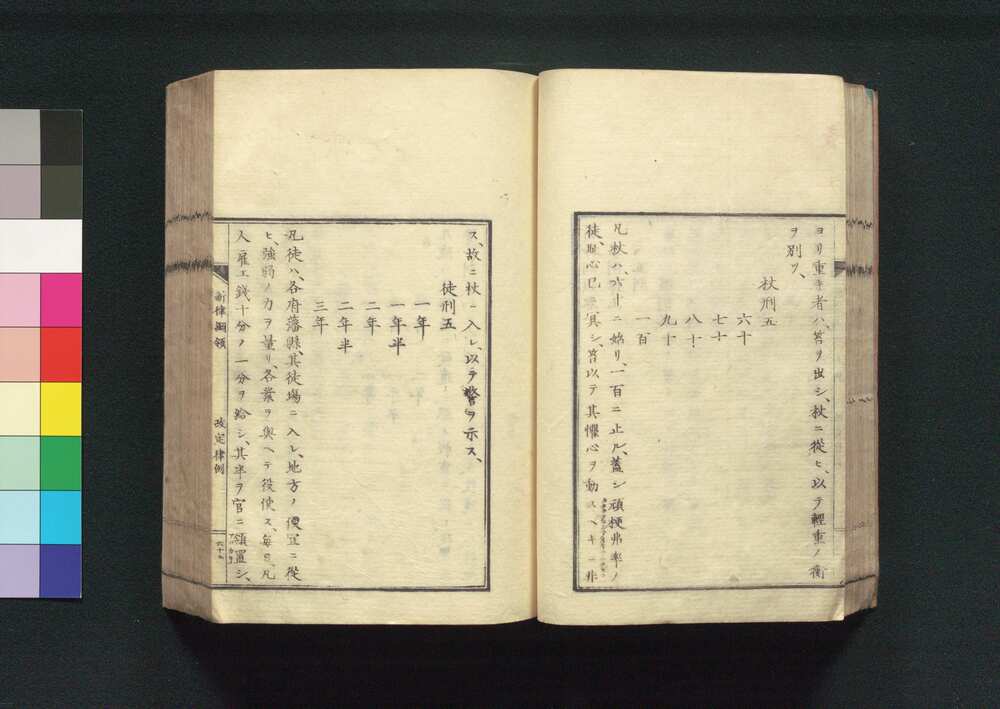 ヨリ重キ者ハ、笞ヲ出シ、杖ニ從ヒ、以テ輕重ノ衡
ヲ別ツ、
杖刑五
六十
七十
八十
九十
一百
凡杖ハ、六十ニ始リ、一百ニ止ル、蓋シ頑梗弗率ノ
徒、心已ニ其シ、笞以テ其懼心ヲ動スヘキニ非
ス、故ニ杖ニ入レ、以テ警ヲ示ス、
徒刑五
一年
一年半
二年
二年半
三年
凡徒ハ、各府藩縣、其徒場ニ入レ、地方ノ便宜ニ從
ヒ、強弱ノ力ヲ量リ、各業ヲ與ヘテ役使ス、每日、凡
人雇工錢十分ノ一分ヲ給シ、其半ヲ官ニ領置シ、
新律綱領
改定律例
六十七